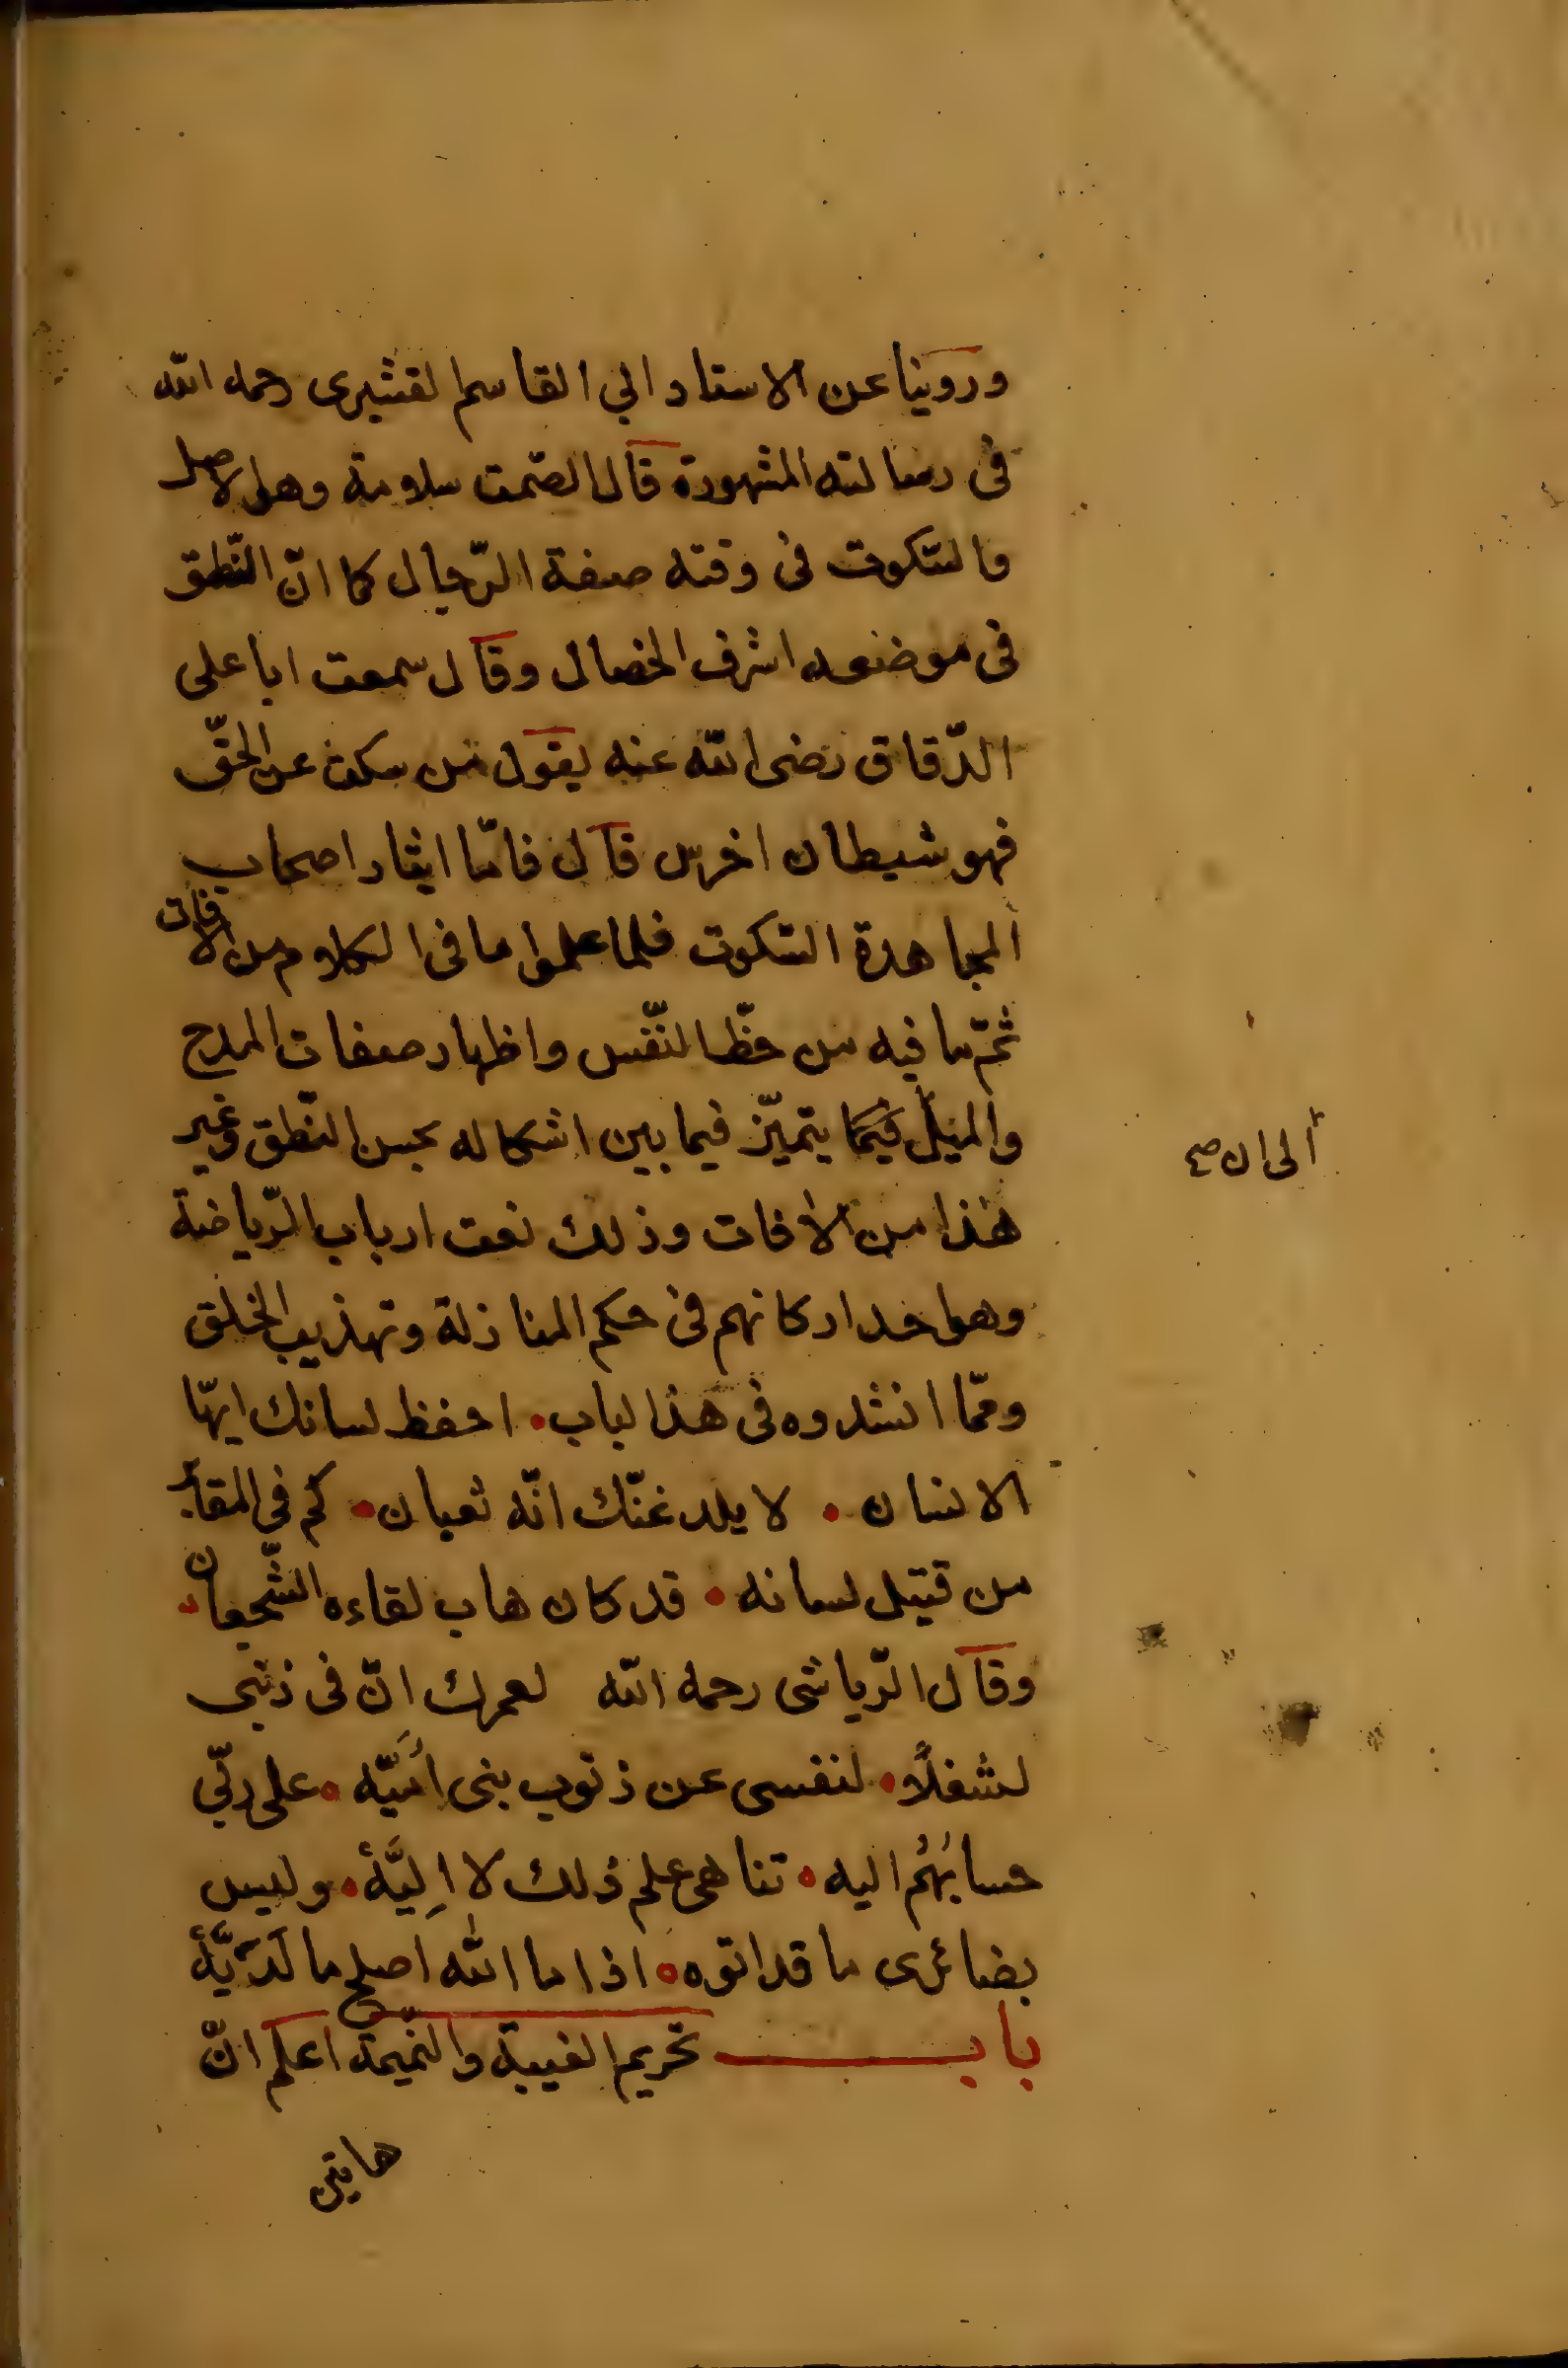 وروينا عن الاستاد ابي القاسم القشيرى رحمه الله
فى رسالته المشهورة قال الصّمت سلامة وهو الاصل
والسّكوت فى وقته صفة الرّجال كما انّ النّطق
فى موضعه اشرف الخصال وقال سمعت ابا على
الدّقاق رضى الله عنه يقول من سكت عن الحقّ
فهو شيطان اخرس قال فامّا ايثار اصحاب
المجاهدة السّكوت فلما علموا ما فى الكلام من الافات
ثمّ ما فيه من حظّ النّفس واظهار صفات المدح
والميل كيما يتميّز فيما بين اشكاله بحسن النّطق وغير
الى ان صح
هذا من الافات وذلك نعت ارباب الرّياضة
وهو احد اركانهم فى حكم المنازلة وتهذيب الخلق
وممّا انشدوه فى هذا لباب • احفظ لسانك ايهّا
الانسان • لا يلدغنّك انّه ثعبان • كم فى المقابر
من قتيل لسانه • قد كان هاب لقاءه الشّجعان •
وقال الرّياشى رحمه الله لعمرك انّ فى ذنبى
لشغلًا • لنفسى عن ذنوب بنى أُمَيّه • على ربّي
حسابُهُم اليه • تناهى علم ذلك لا اِلَيَّهْ • وليس
بضائرى ما قد اتوه • اذا ما الله اصلح ما لَدَيَّهْ
باب تحريم الغيبة والنّميمة اعلم انّ
هاتين